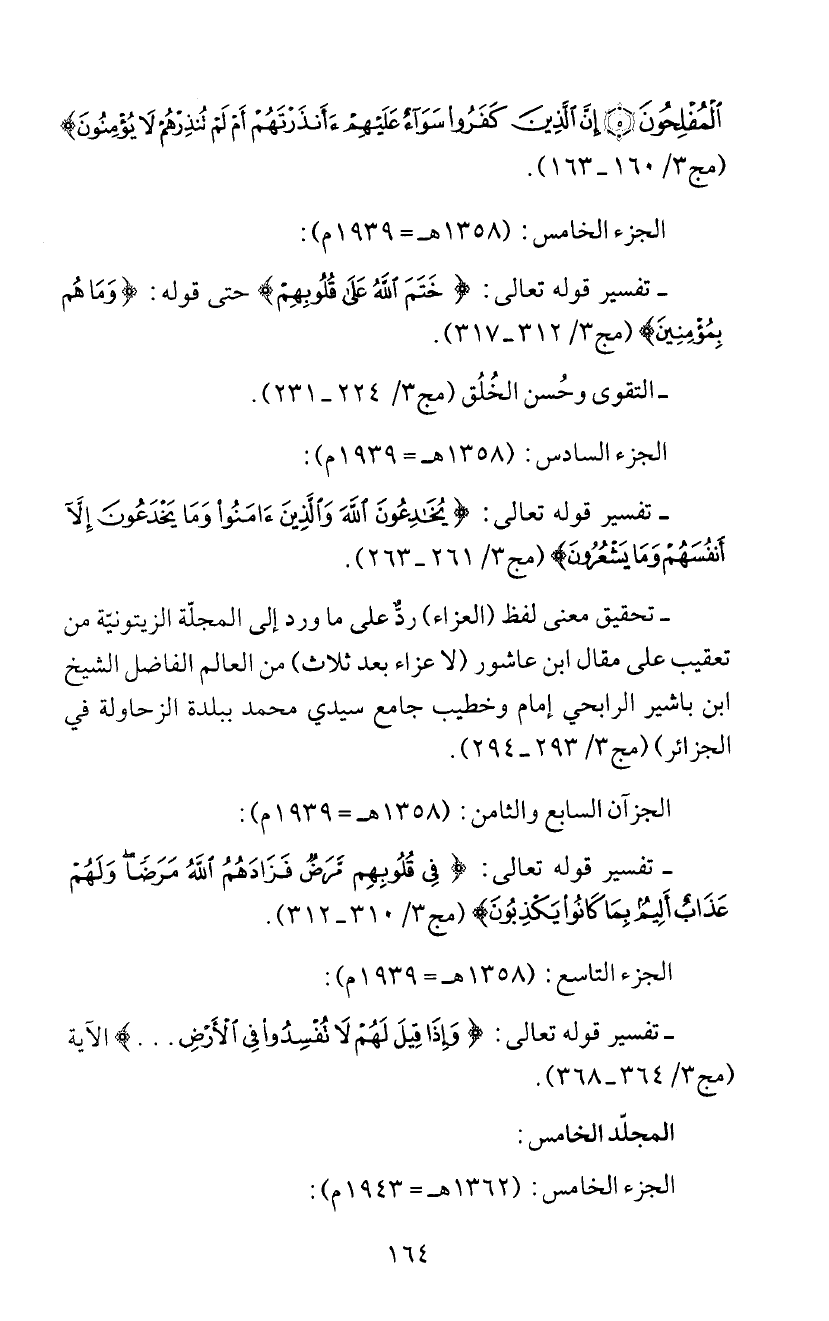 ٱلۡمُفۡلِحُونَ ۝٥ إِنَّ ٱلَّذِينَ كَفَرُواْ سَوَآءٌ عَلَيۡهِمۡ ءَأَنذَرۡتَهُمۡ أَمۡ لَمۡ تُنذِرۡهُمۡ لَا يُؤۡمِنُونَ﴾
(مج٣/ ١٦٠ ـ ١٦٣).
الجزء الخامس: (١٣٥٨هـ = ١٩٣٩م):
ـ تفسير قوله تعالى: ﴿خَتَمَ ٱللَّهُ عَلَىٰ قُلُوبِهِمۡ﴾ حتى قوله: ﴿وَمَا هُم
بِمُؤۡمِنِينَ﴾ (مج٣/ ٣١٢ ـ ٣١٧).
ـ التقوى وحُسن الخُلُق (مج٣/ ٢٢٤ ـ ٢٣١).
الجزء السادس: (١٣٥٨هـ = ١٩٣٩م):
ـ تفسير قوله تعالى: ﴿يُخَٰدِعُونَ ٱللَّهَ وَٱلَّذِينَ ءَامَنُواْ وَمَا يَخۡدَعُونَ إِلَّآ
أَنفُسَهُمۡ وَمَا يَشۡعُرُونَ﴾ (مج٣/ ٢٦١ ـ ٢٦٣).
ـ تحقيق معنى لفظ (العزاء) ردٌّ على ما ورد إلى المجلّة الزيتونيّة من
تعقيب على مقال ابن عاشور (لا عزاء بعد ثلاث) من العالم الفاضل الشيخ
ابن باشير الرابحي إمام وخطيب جامع سيدي محمد ببلدة الزحاولة في
الجزائر) (مج٣/ ٢٩٣ ـ ٢٩٤).
الجزآن السابع والثامن: (١٣٥٨هـ = ١٩٣٩م):
ـ تفسير قوله تعالى: ﴿فِي قُلُوبِهِم مَّرَضٌ فَزَادَهُمُ ٱللَّهُ مَرَضٗاۖ وَلَهُمۡ
عَذَابٌ أَلِيمُۢ بِمَا كَانُواْ يَكۡذِبُونَ﴾ (مج٣/ ٣١٠ ـ ٣١٢).
الجزء التاسع: (١٣٥٨هـ = ١٩٣٩م):
ـ تفسير قوله تعالى: ﴿وَإِذَا قِيلَ لَهُمۡ لَا تُفۡسِدُواْ فِي ٱلۡأَرۡضِ...﴾ الآية
(مج٣/ ٣٦٤ ـ ٣٦٨).
المجلّد الخامس:
الجزء الخامس: (١٣٦٢هـ = ١٩٤٣م):
١٦٤